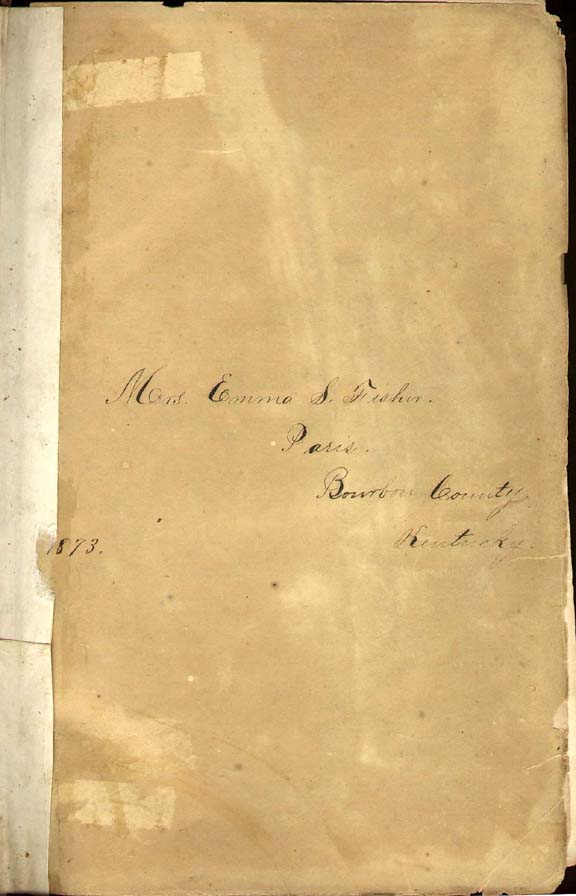 Mrs. Emma S. Fisher.
Paris.
Bourbon County
Kentucky.
1873.